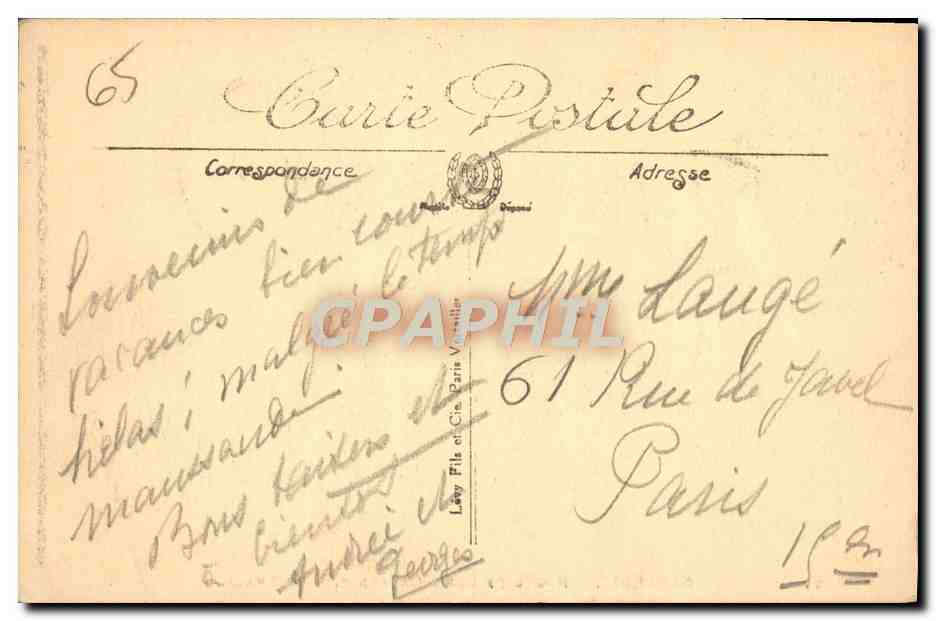 65
Carte Postale
Correspondance
Adresse
Marque Déposé
Souvenirs de
vacances bien courtes
hélas, malgré le temps
maussade.
Bons baisers et
à bientôt
Andrée et
Georges
Lévy Fils et Cie. Paris Versailles
Mme Laugé
61 Rue de Javel
Paris
15 en
CPAPHIL